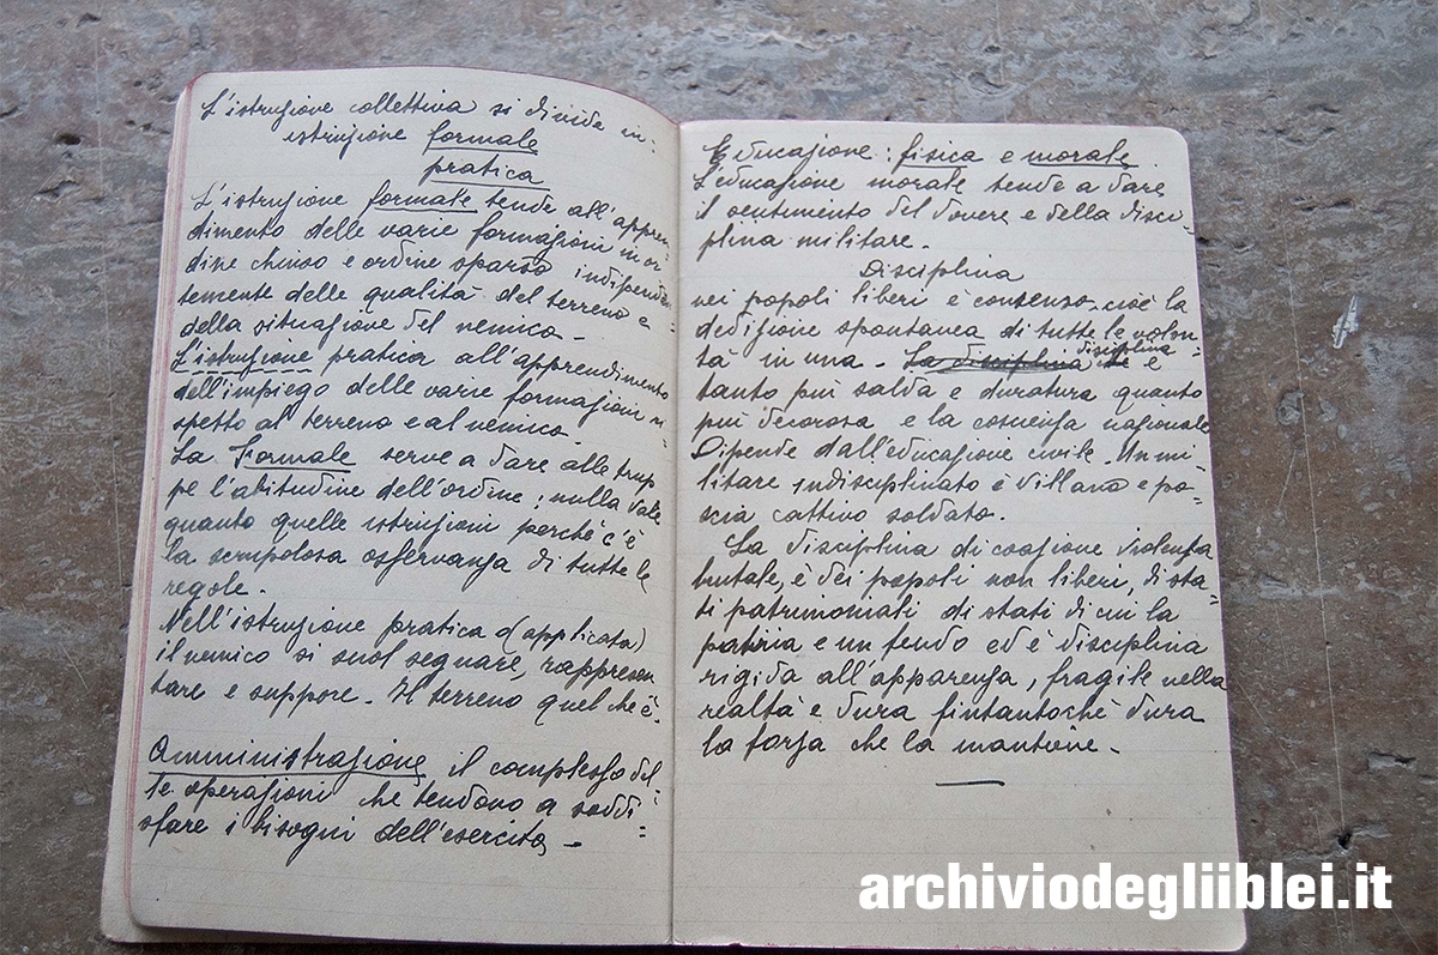 L'istruzione collettiva si divide in:
istruzione formale
pratica
L'istruzione formale tende all'appren=
dimento delle varie formazioni in or=
dine chiuso e ordine sparso indipenden
temente delle qualità del terreno e
della situazione del nemico -
L'istruzione pratica all'apprendimento
dell'impiego delle varie formazioni ri=
spetto al terreno e al nemico -
La Formale serve a dare alle trup
pe l'abitudine dell'ordine; nulla vale
quanto quelle istruzioni perchè c'è
la scrupolosa osservanza di tutte le
regole -
Nell'istruzione pratica o (applicata)
il nemico si suol segnare, rappresen
tare e suppore - Il terreno quel che è -
Amministrazione il complesso del=
le operazioni che tendono a soddi=
sfare i bisogni dell'esercito -
Educazione: fisica e morale
L'educazione morale tende a dare
il sentimento del dovere e della disci=
plina militare -
Disciplina
nei popoli liberi è consenso cioè la
dedizione spontanea di tutte le volon=
tà in una - La disciplina disciplina è
tanto più salda e duratura quanto
più decorosa e la coscienza nazionale
Dipende dall'educazione civile - Un mi=
litare indisciplinato è villano e po=
scia cattivo soldato -
La disciplina di coazione violenza
brutale, è dei popoli non liberi, di sta=
ti patrimoniali di stati di cui la
patria e un feudo ed è disciplina
rigida all'apparenza, fragile nella
realtà e dura fintantochè dura
la forza che la mantiene -
archiviodegliiblei.it